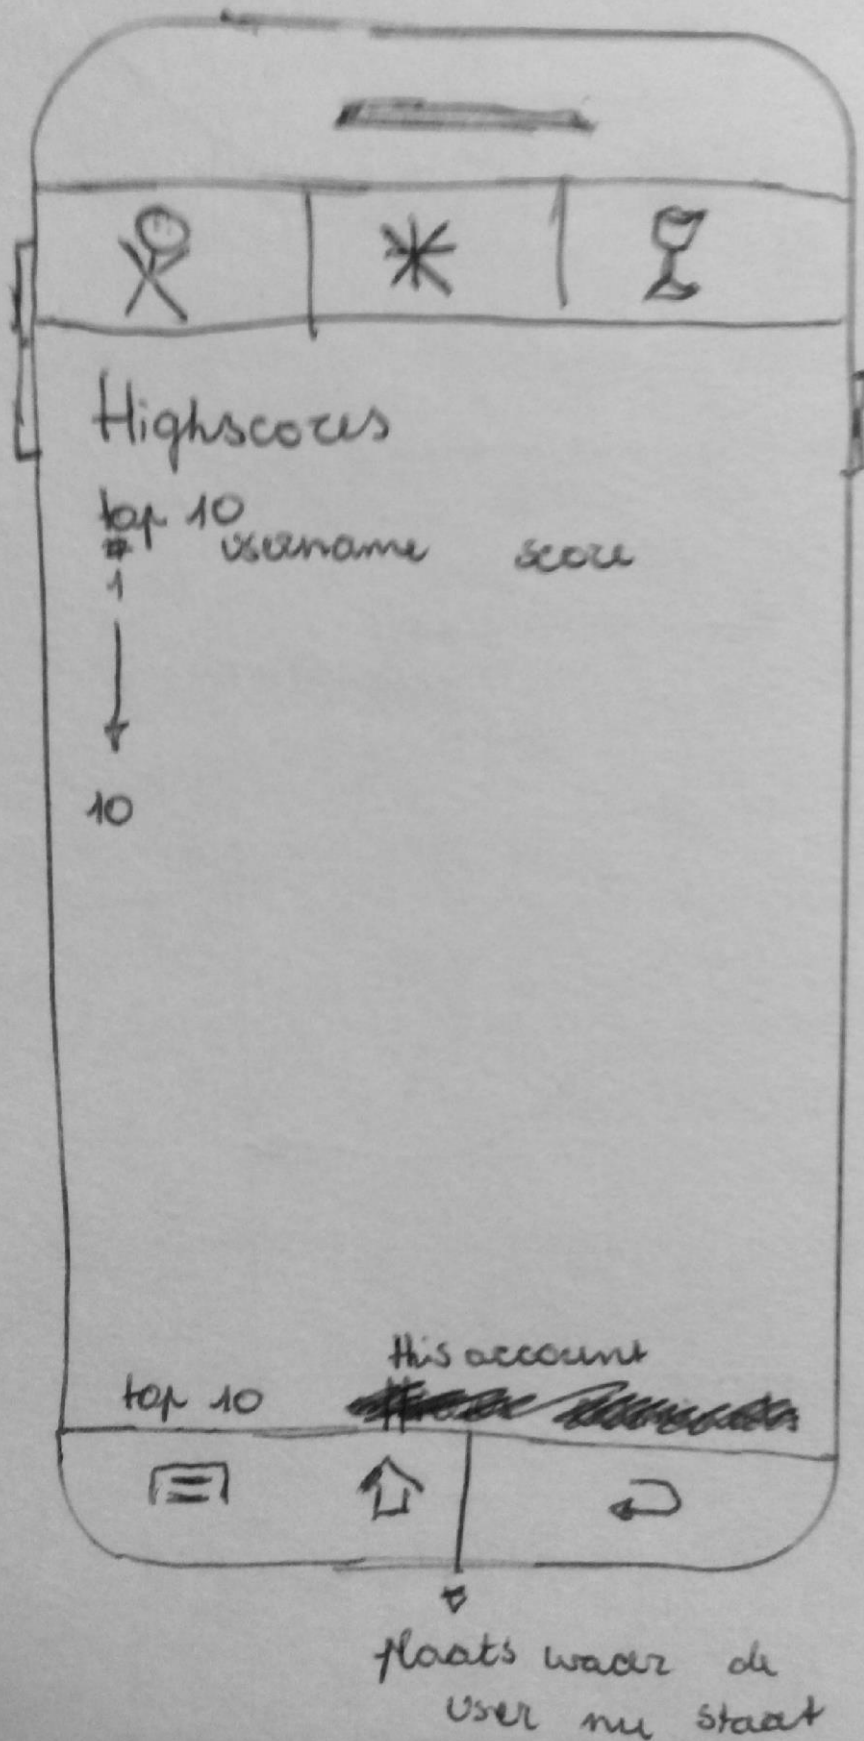 Highscores
top 10
# username score
1
10
this account
top 10
plaats waar de
user nu staat